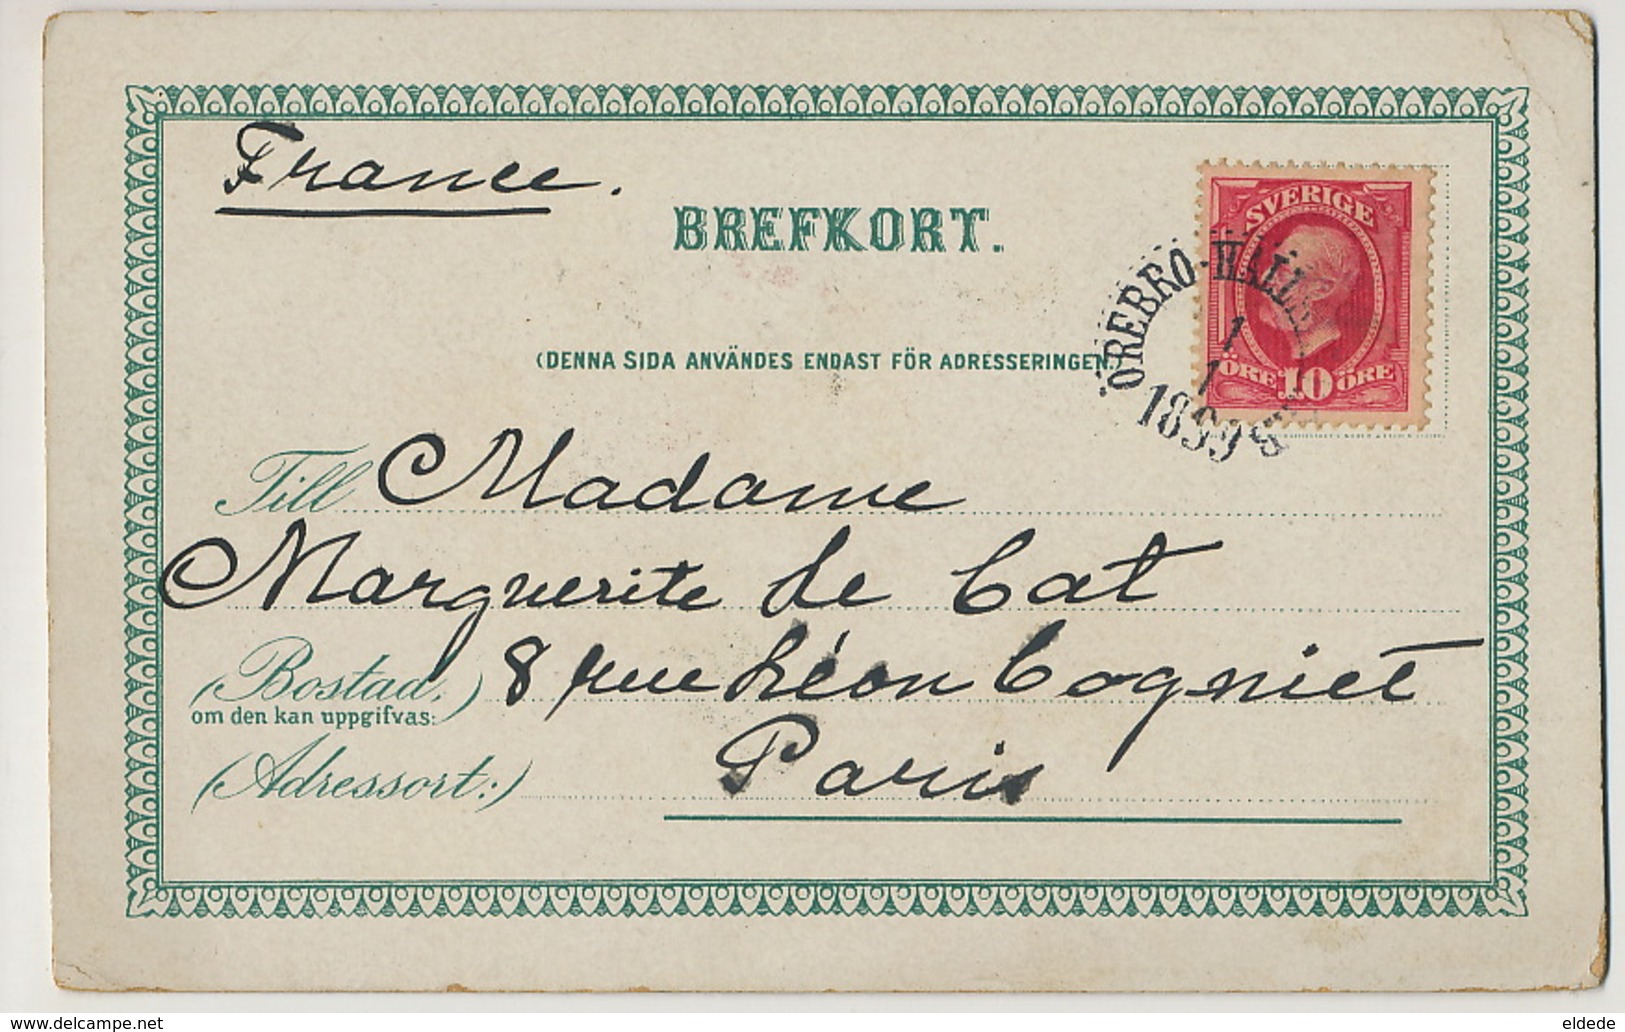 France.
BREFKORT.
SVERIGE
ÖREBRO-HALLS
1
1
1899
ÖRE 10 ÖRE
(DENNA SIDA ANVÄNDES ENDAST FÖR ADRESSERINGEN.)
Till Madame
Marguerite de Cat
(Bostad,) 8 rue Léon Cogniet
om den kan uppgifvas:
(Adressort:) Paris
delcampe.net
eldede